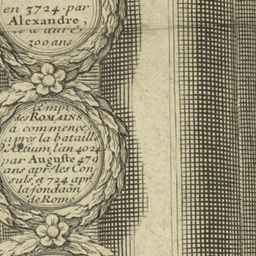 en 3724 par
Alexandre,
a dure
200 ans
Empi
des ROMAINS
a commencé
après la bataille
d'Actium l'an 4024
par Auguste 479
ans apr. les Con
suls, et 724 apr
la fondaōn
de Rome